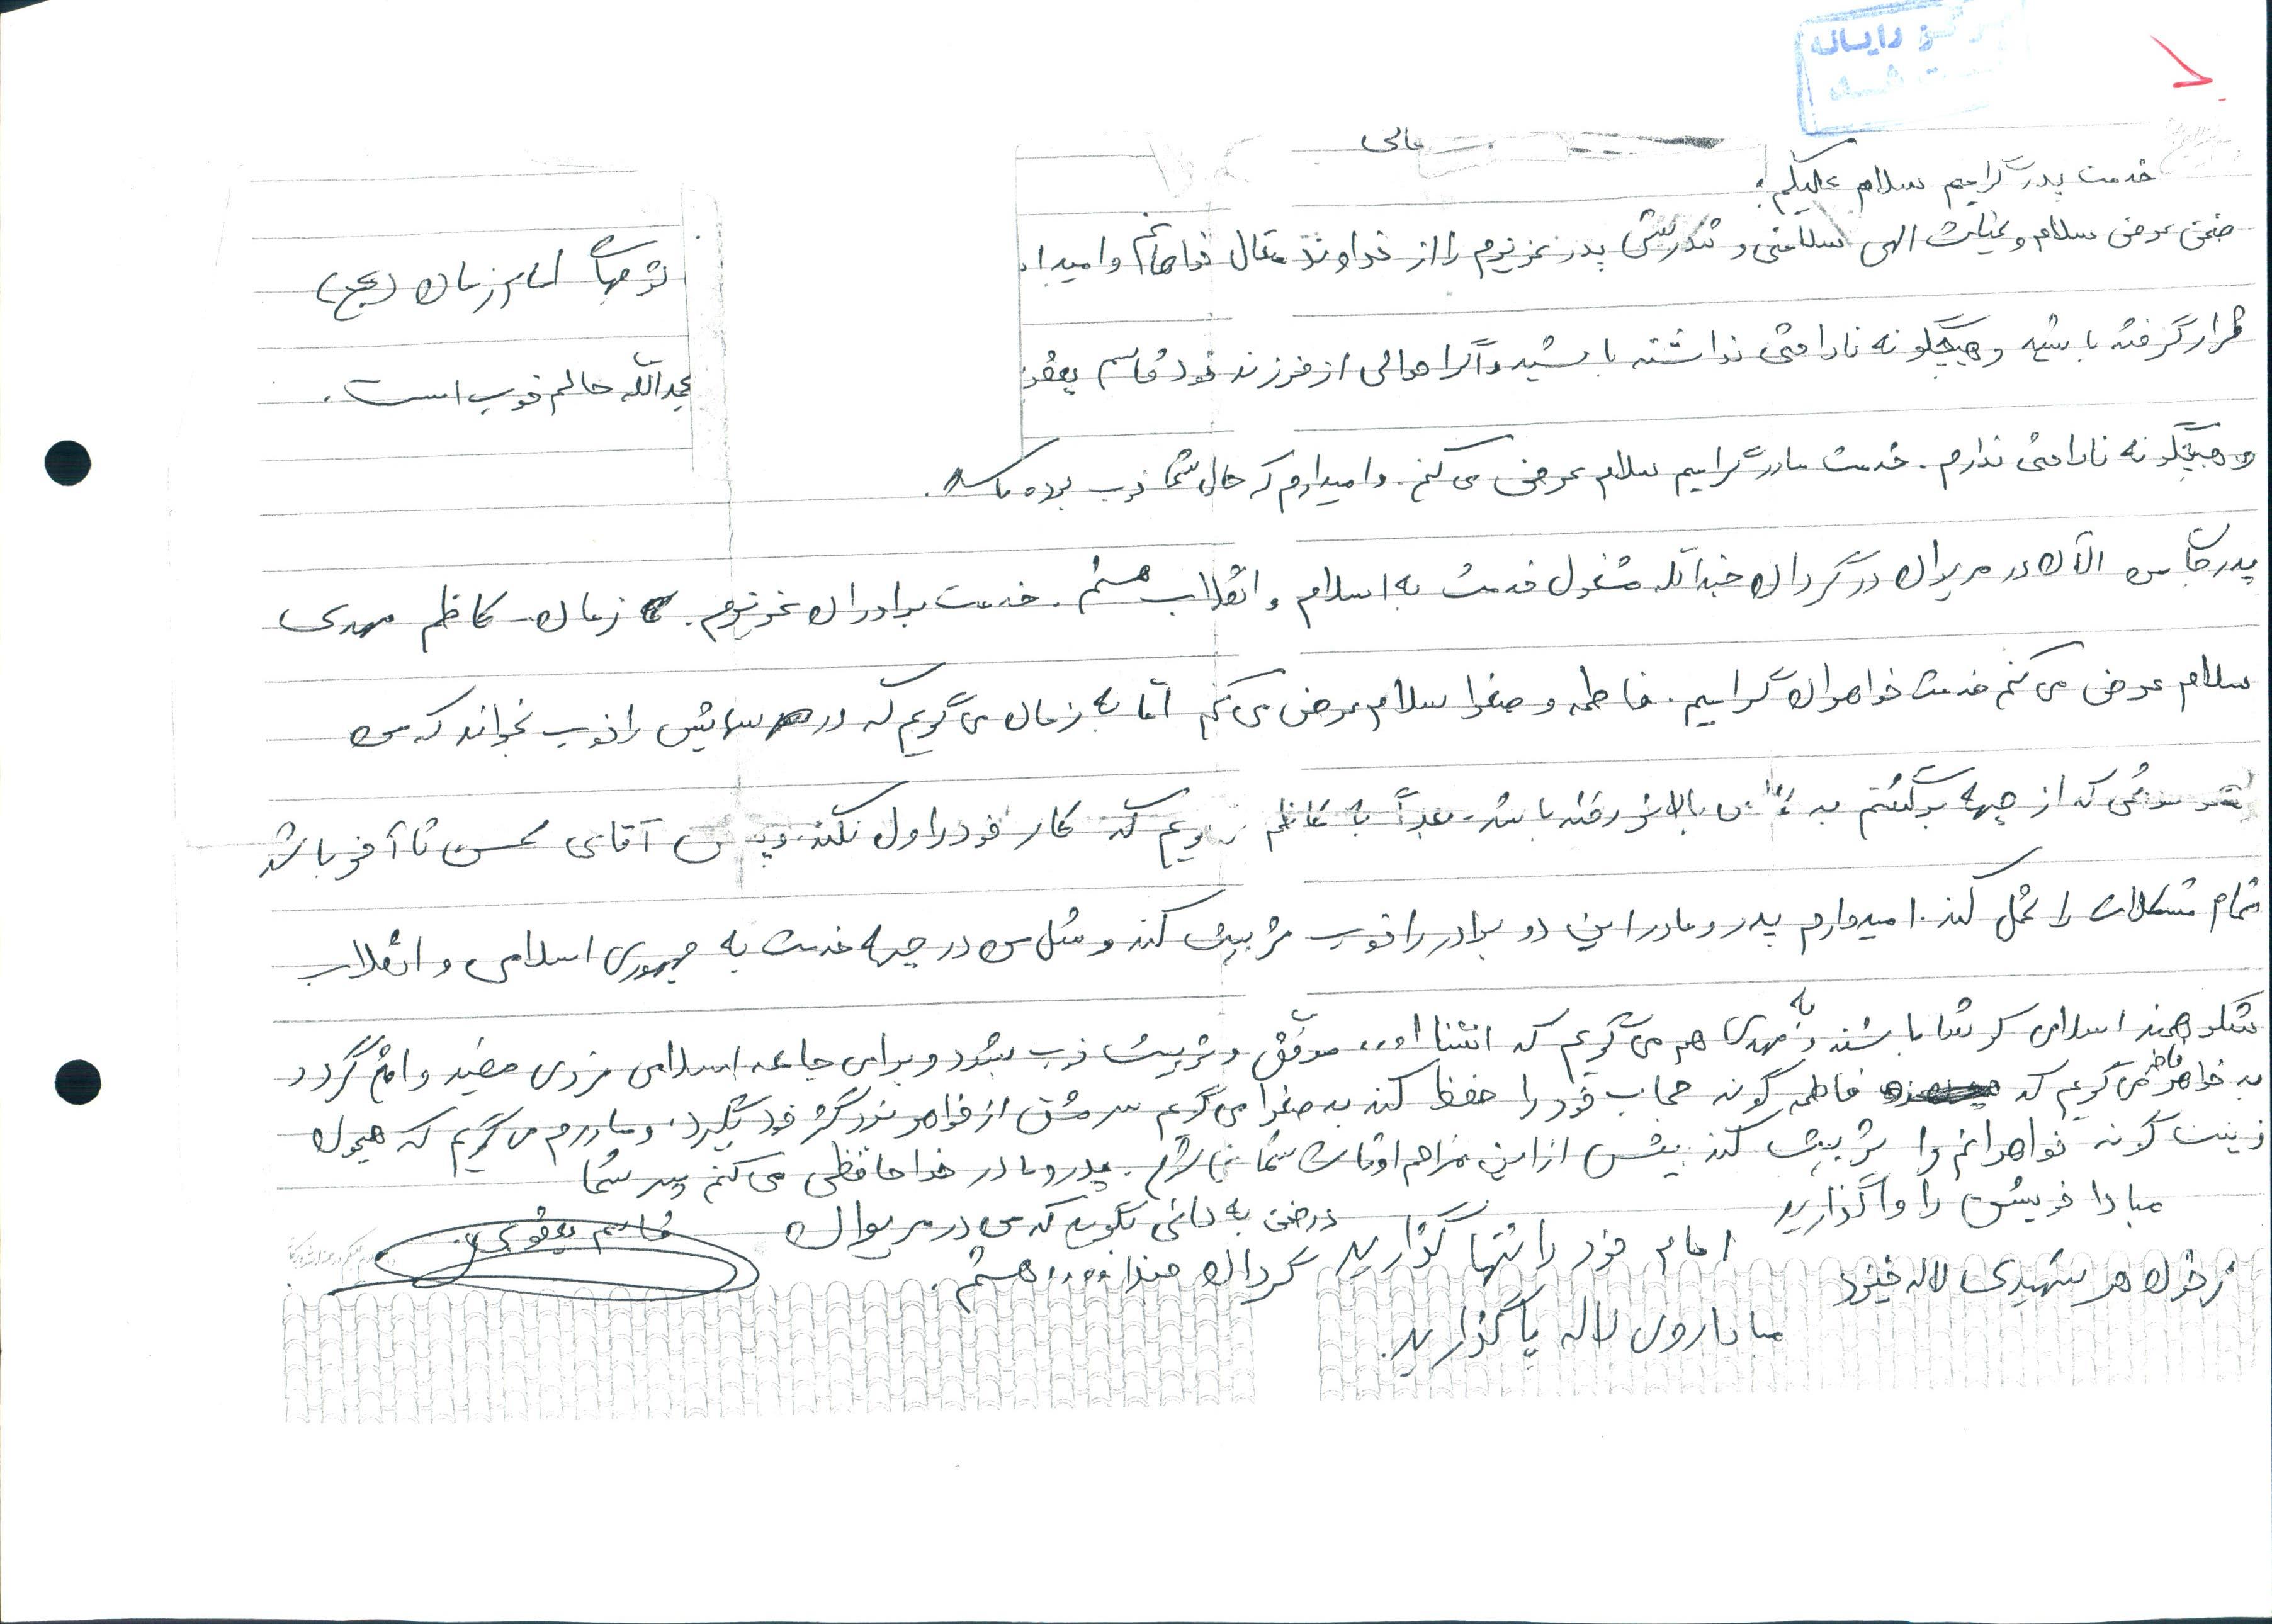 رایانه
عالی
خدمت پدر گرامیم سلام علیکم:
ضمن عرض سلام و عنایت الهی سلامتی و تندرستی پدر عزیزم را از خداوند متعال خواهانم و امیدا توجهات امام زمان (عج)
قرار گرفته باشید و هیچگونه ناراحتی نداشته باشید و اگر احوالی از فرزند خود قاسم یعقو بحمدالله حالم خوب است.
و هیچگونه ناراحتی ندارم. خدمت مادر گرامیم سلام عرض می کنم. و امیدوارم که حال شما خوب بوده باشد.
پدرجان من الان در مریوان در گردان جندالله مشغول خدمت به اسلام و انقلاب هستم. خدمت برادران عزیزم. زمان. کاظم مهدی
سلام عرض می کنم خدمت خواهران گرامیم. فاطمه و صغرا سلام عرض می کنم اما به زمان می گویم که درسهایش را خوب بخواند که من
که از جبهه برگشتم به بالاتر رفته باشد. بعداً به کاظم گویم که کار خود را ول نکند و پیش آقای محسن تا آخر باشد
تمام مشکلات را تحمل کند. امیدوارم پدر و مادر این دو برادر را خوب تربیت کند و مثل من در جبهه خدمت به جمهوری اسلامی و انقلاب
شکوهمند اسلامی کوشا باشند و به مهدی هم می گویم که انشاا... موفق و تربیت خوب بشود و برای جامعه اسلامی فردی مفید واقع گردد
به خواهرم فاطمه می گویم که فاطمه گونه حجاب خود را حفظ کند به صغرا می گویم سرمشق از خواهر بزرگتر خود بگیرد، و مادرم می گویم که همچون
زینب گونه خواهرانم را تربیت کند بیش از این مزاحم اوقات شما نمی شوم. پدر و مادر خداحافظی می کنم پسر شما
مبادا خویش را واگذارید امام خود را تنها گذارید
ز خون هر شهیدی لاله خیزد مبادا روی لاله پا گذارید.
درضمن به دائی بگویید که من در مریوان
گردان جندا... هستم.
قاسم یعقوبی